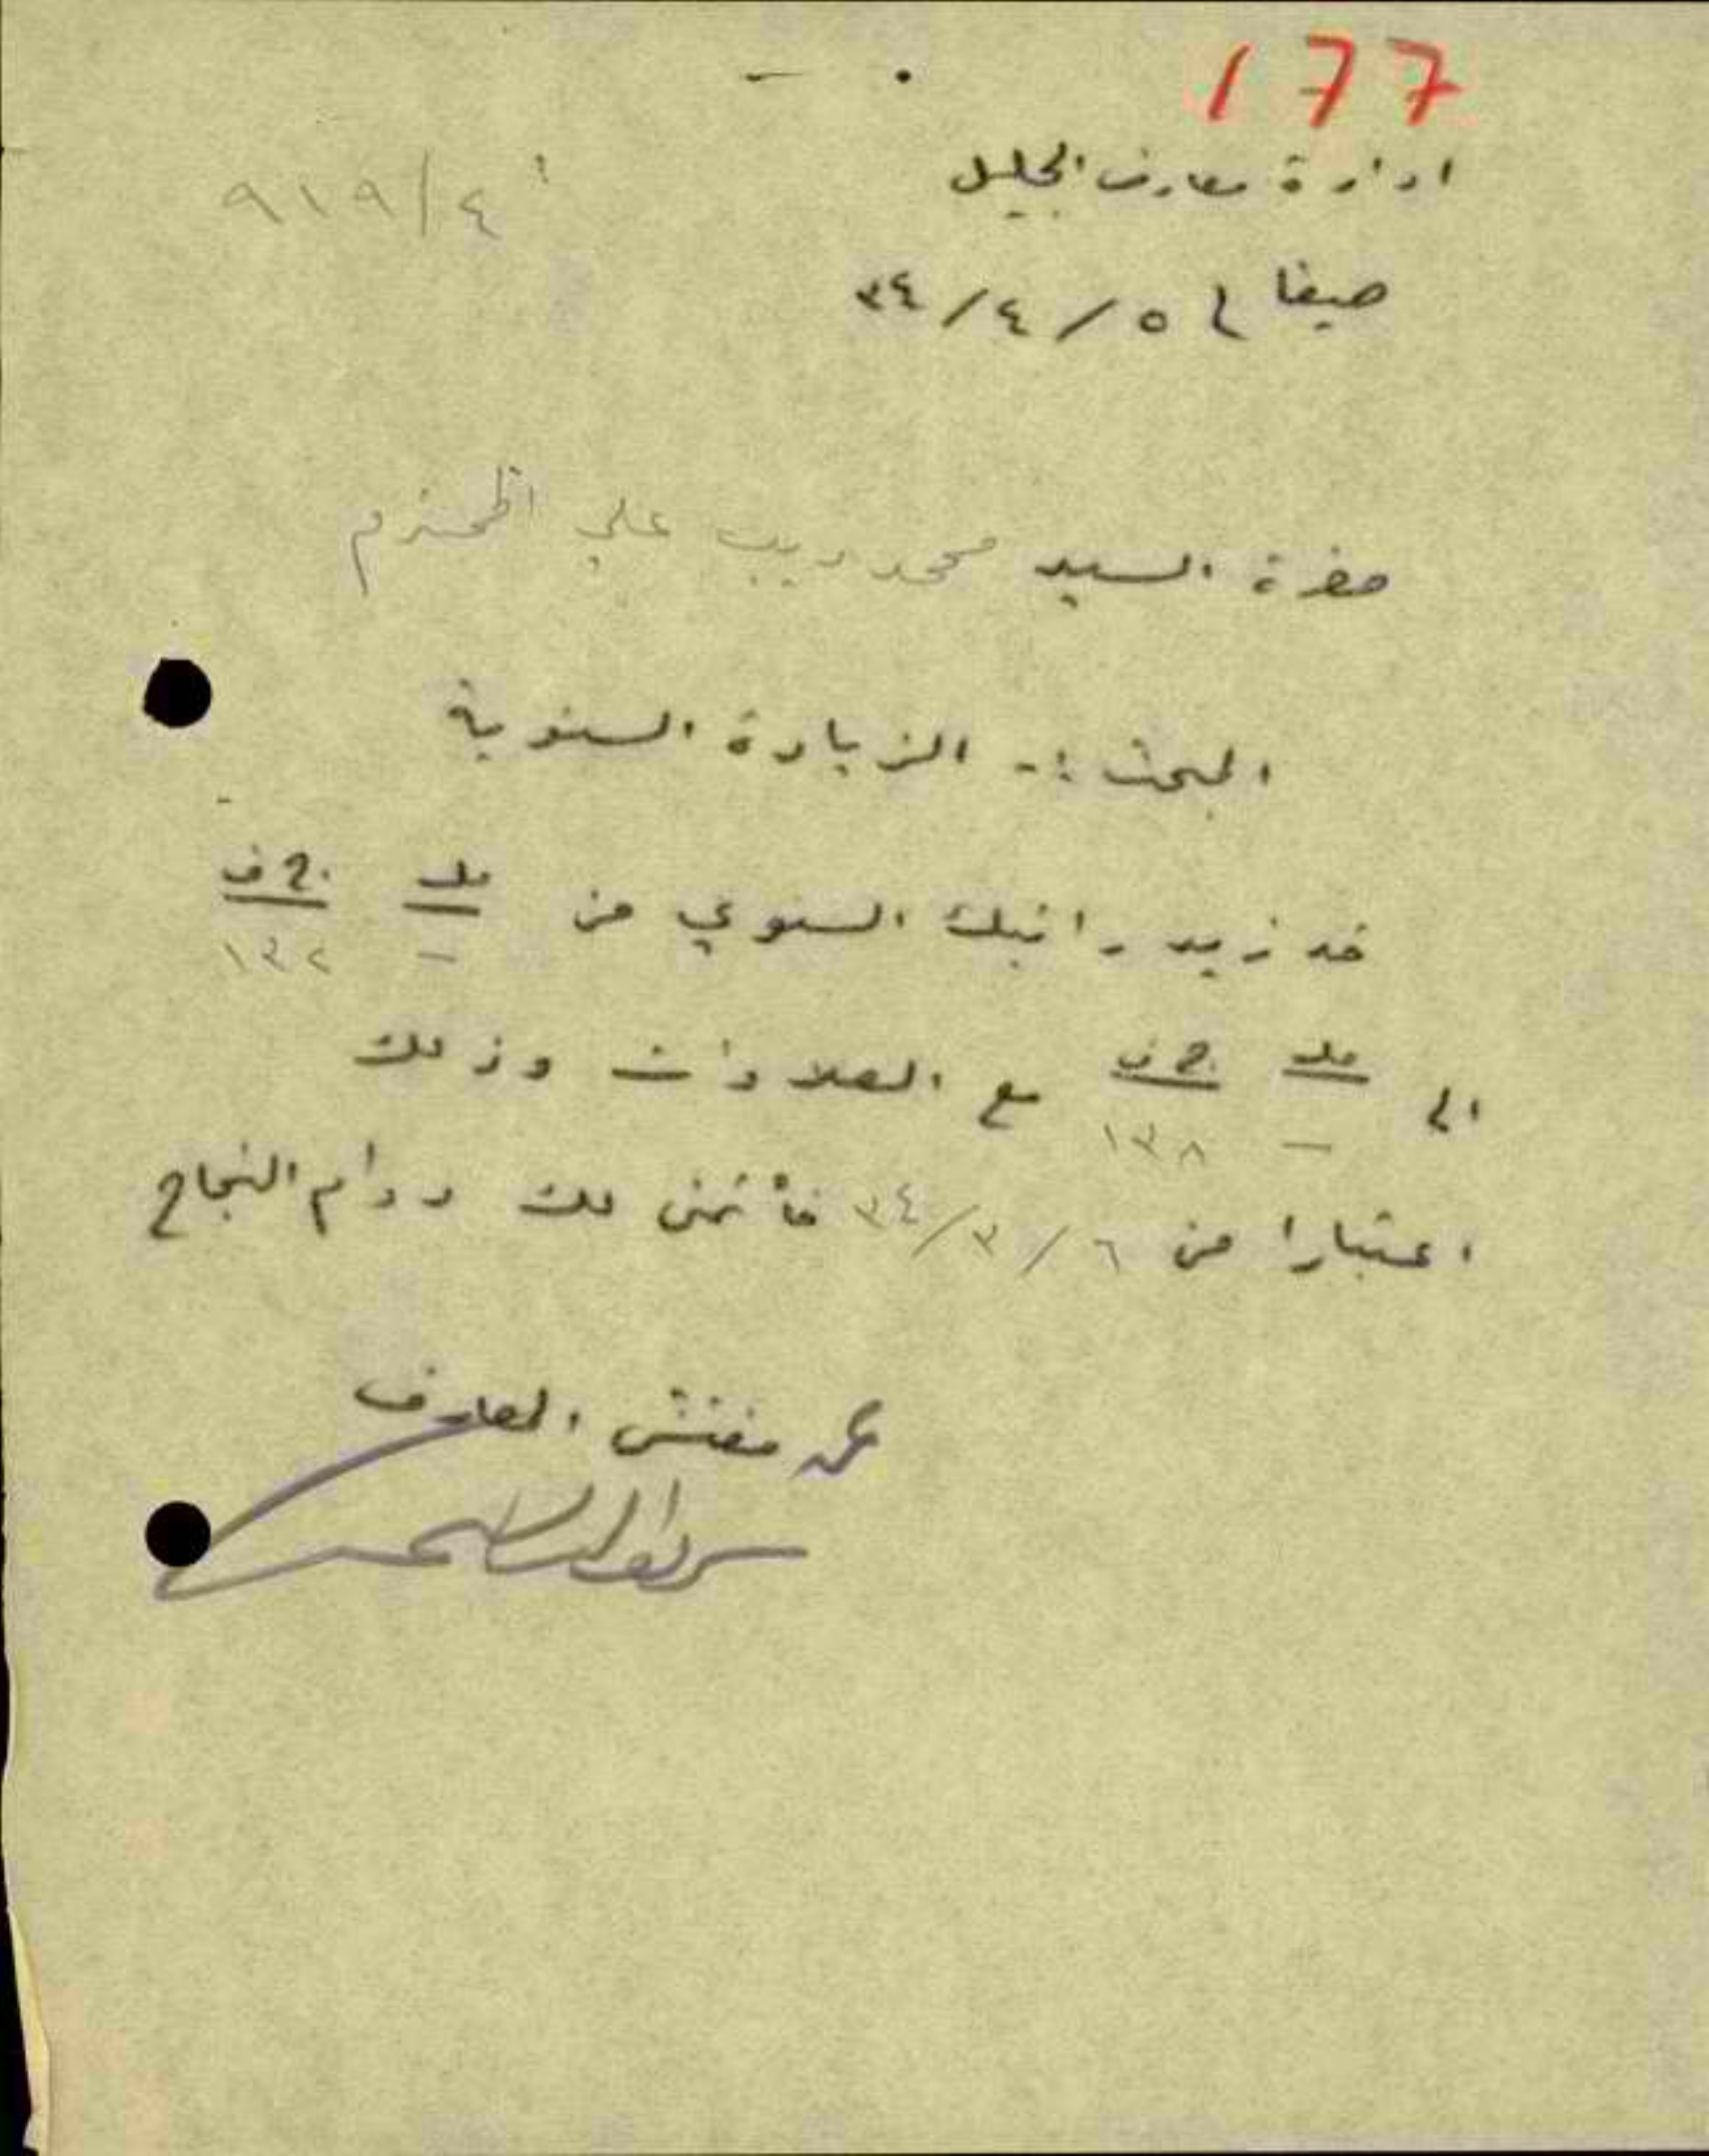 177
ادارة معارف الجليل
أ ٩١٩/٤
حيفا في ٥/٤/٣٤
حضرة السيد محمد ديب علي المحترم
المبحث :- الزيادة السنوية
قد زيد راتبك السنوي من مل ج.ف
- ١٣٢
الى مل ج.ف مع العلاوات وذلك
- ١٣٨
اعتبارا من ٦/٣/٣٤ فأتمنى لك دوام النجاح
مفتش المعارف